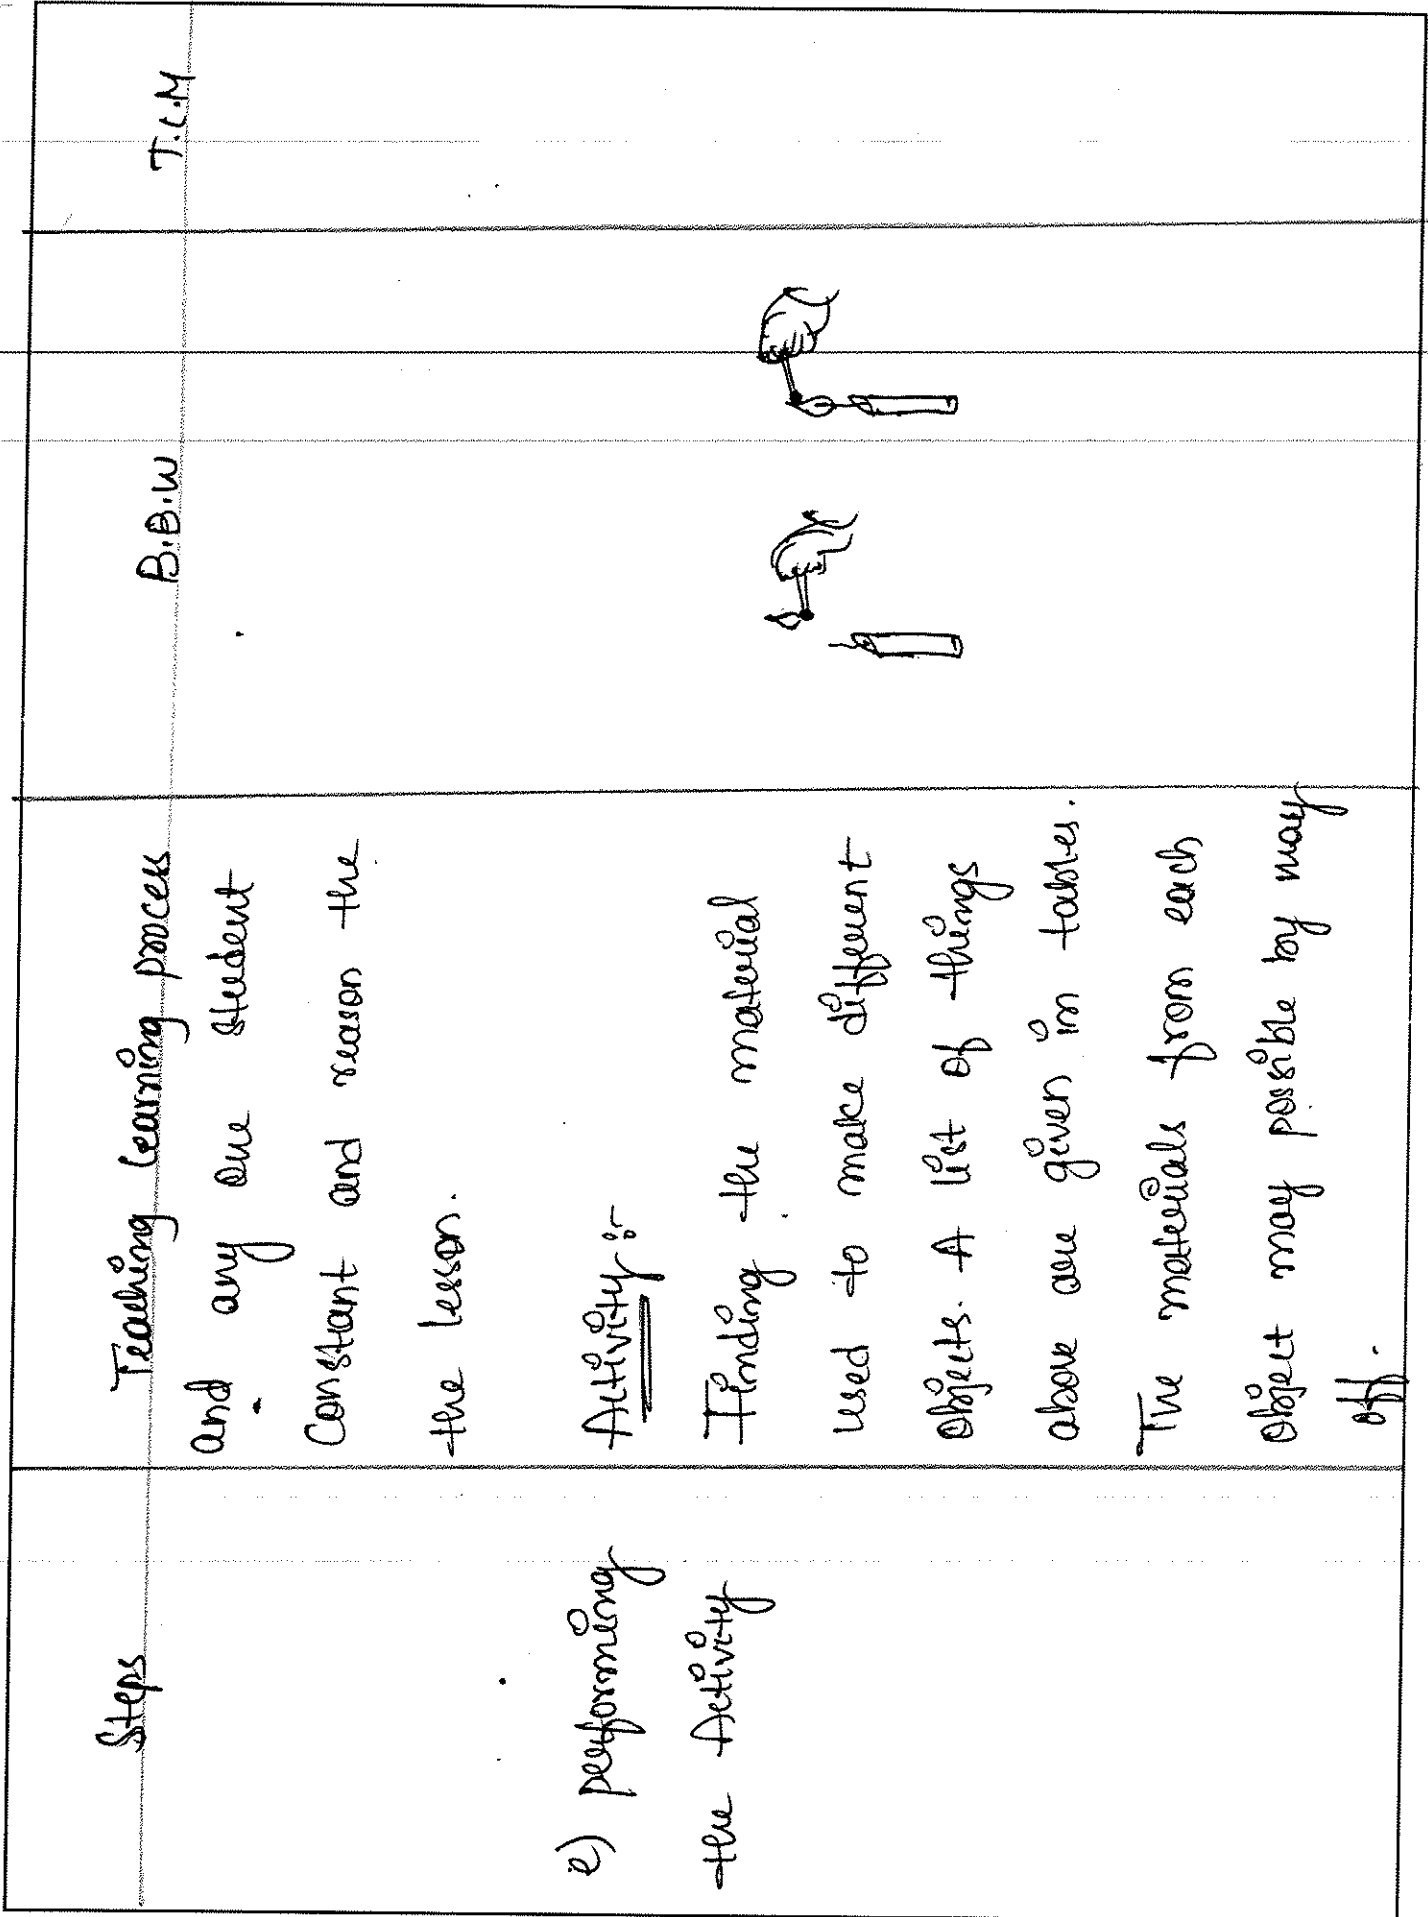 Steps
Teaching learning process
B.B.W
T.L.M
and any one student
Constant and reason the
the lesson.
e) performing
the Activity
Activity :-
Finding the material
used to make different
Objects. A list of things
above are given in tables.
The materials from each
Object may possible by may
off.